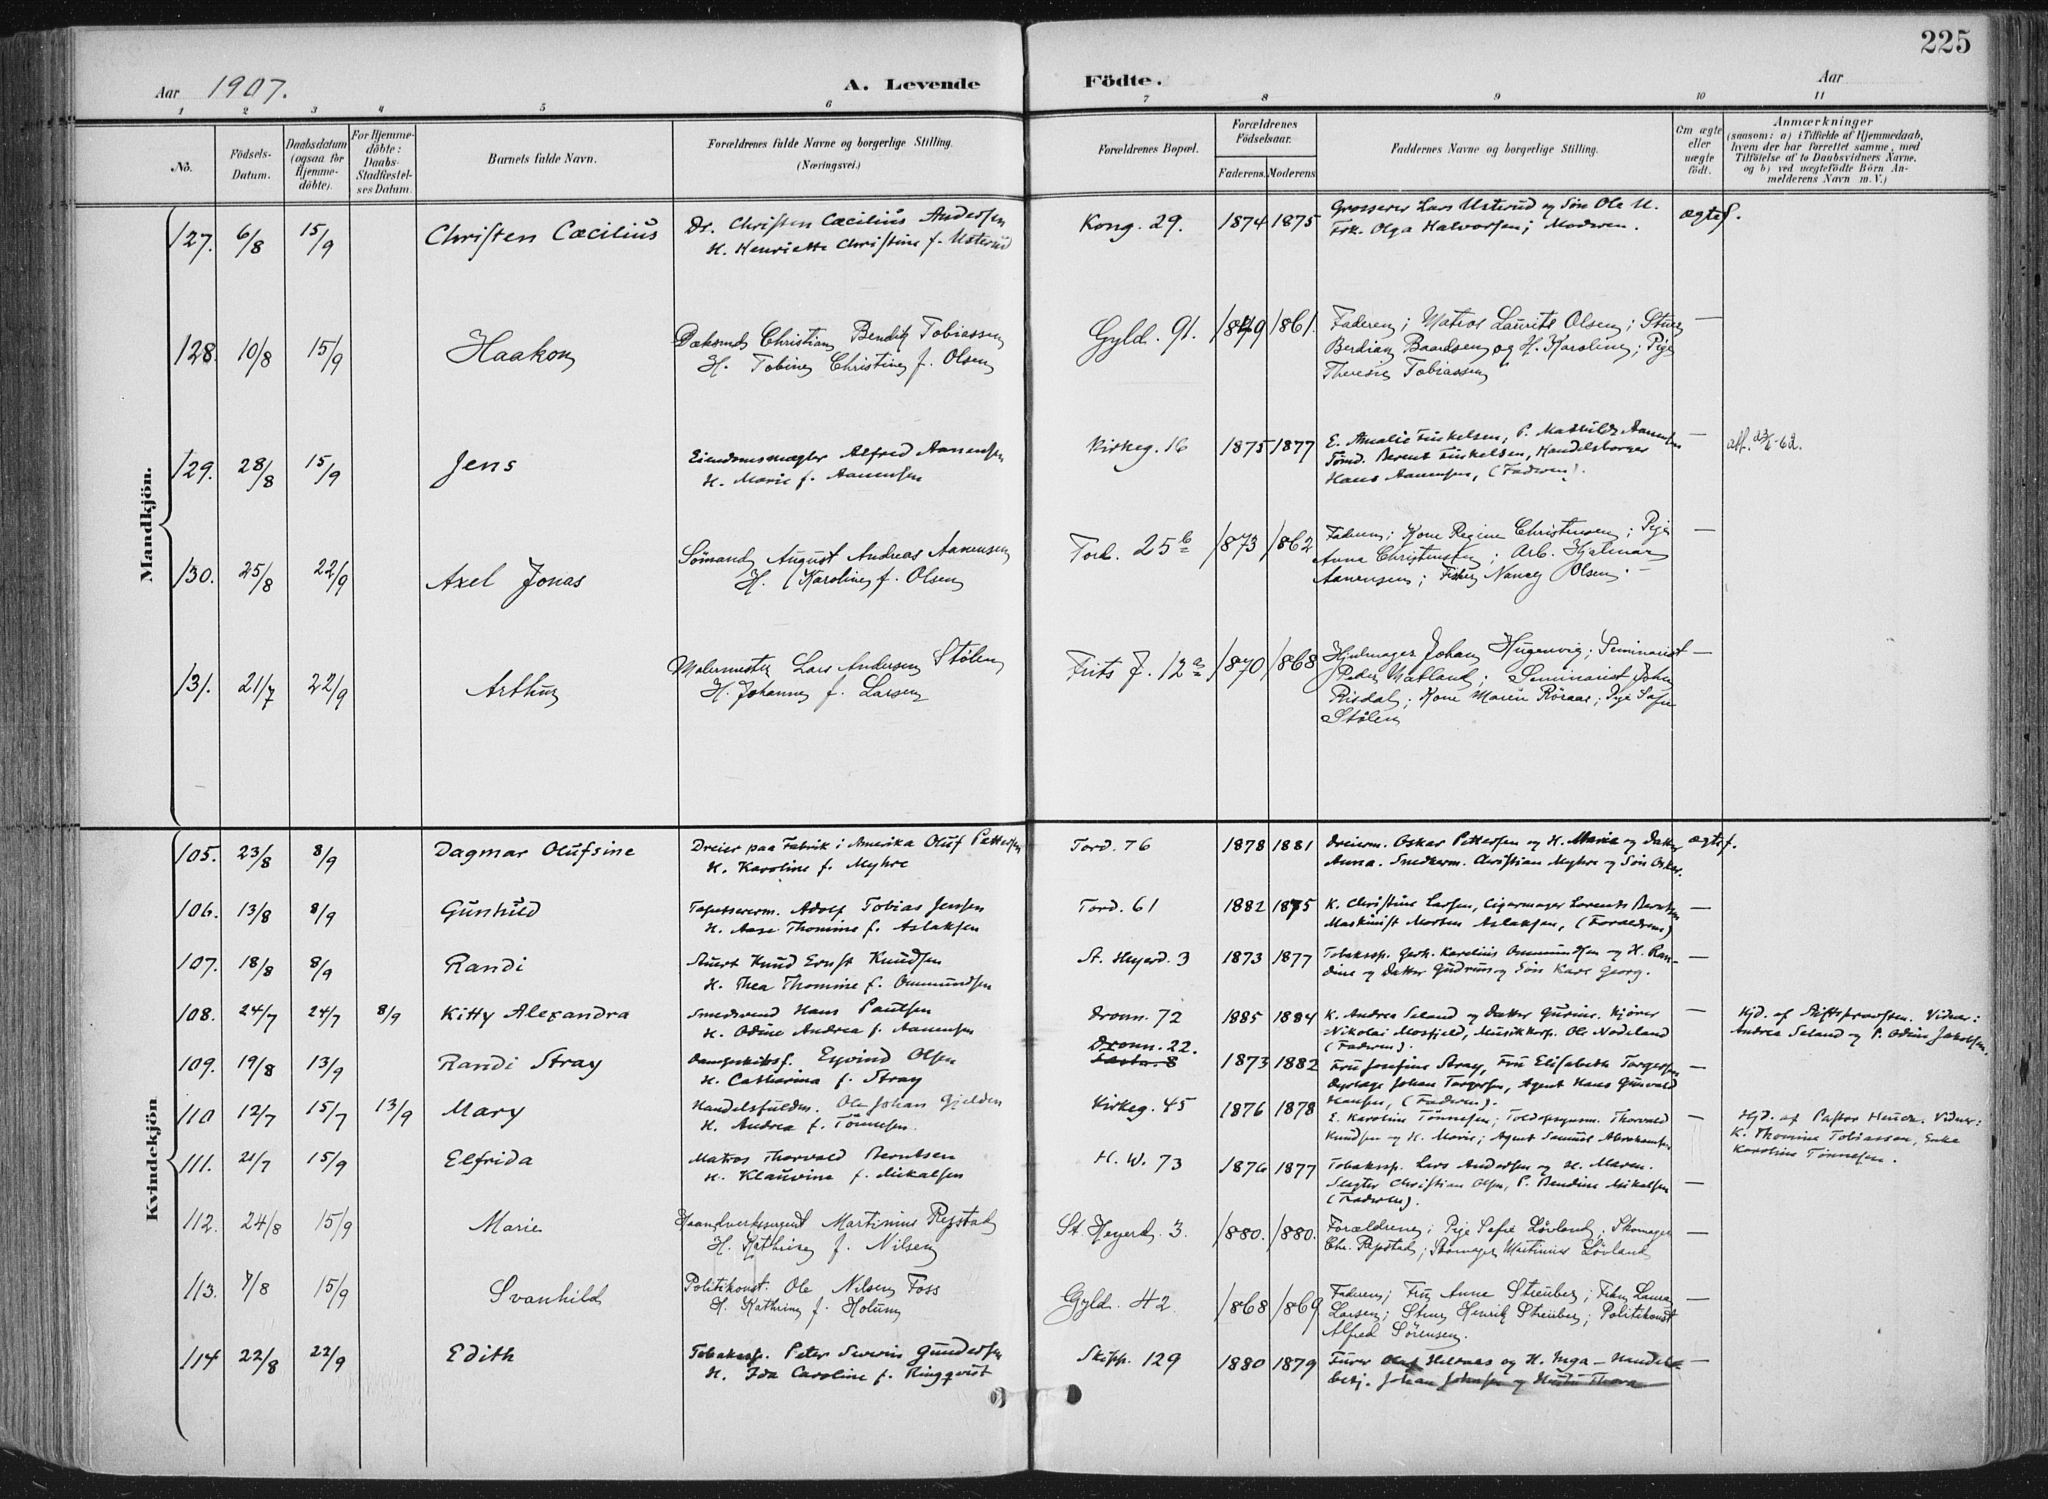 225
Aar 1907.
A. Levende Födte.
Aar
1 2 3 4 5 6 7 8 9 10 11
No.
Födsels-Datum.
Daabsdatum (ogsaa for Hjemme-döbte).
For Hjemme-döbte: Daabs-Stadfæstel-ses Datum.
Barnets fulde Navn.
Forældrenes fulde Navne og borgerlige Stilling.
(Næringsvei.)
Forældrenes Bopæl.
Forældrenes Födselsaar.
Faderens. Moderens
Faddernes Navne og borgerlige Stilling.
Om ægte eller uægte födt.
Anmærkninger
(saasom: a) i Tilfælde af Hjemmedaab,
hvem der har forrettet samme, med
Tilföielse af to Daabsvidners Navne,
og b) ved uægtefödte Börn An-
melderens Navn m. V.)
Mandkjön.
127. 6/8 15/9 Christen Cæcilius Dr. Christen Cæcilius Andersen Kong. 29. 1874 1875 Grosserer Lars Usterud og Sön Ole U. ægtef.
H. Henriette Christine f. Usterud Frk. Olga Halvorsen; Moderen.
128. 10/8 15/9 Haakon Christian Bendik Tobiassen Gyld. 91. 1861. Faderen; Matros Laurits Olsen; —
H. Tobine Christine f. Olsen Baardsen og H. Karoline; Pige
Tobiassen
129. 28/8 15/9 Jens Eiendomsmægler Alfred Aanensen Kirkeg. 16 1875 1877 E. Amalie Finkelsen, P. Mathilde Aanensen —
H. Marie f. Aanensen Berent Finkelsen, Handelsborger
Hans Aanensen, (Faderen).
130. 25/8 22/9 Axel Jonas Sömand August Andreas Aanensen 25 b 1873 1862 Faderen; Kone Regine Christensen; Pige —
H. Karoline f. Olsen Anna Christensen; Arb. Hjalmar
Aanensen; Nancy Olsen.
131. 21/7 22/9 Arthur Malermester Lars Andersen Stølen Frits J. 12 a 1870 1868 Hjulmager Johan Seminarist —
H. Johanne f. Larsen Peder Natland; Seminarist John
Risdal; Kone Maren Röraas; Pige
Stølen
Kvindekjön
105. 23/8 8/9 Dagmar Olufsine Dreier paa Fabrik i Amerika Oluf Pettersen Tord. 76 1878 1881 Dreierm. Oskar Pettersen og H. Marie og Datter ægtef.
H. Karoline f. Myhre Anna. Smedkerm. Christian Myhre og Sön Oskar.
106. 13/8 8/9 Gunhild Tapetsererm. Adolf Tobias Jensen Tord. 61 1882 1875 K. Christine Larsen, Cigarmager Lorents —
H. Aase Thomine f. Aslaksen Maskinist Morten Aslaksen, (Forældrene)
107. 18/8 8/9 Randi Stuert Knud Ernst Knudsen St. Heyerd. 3 1873 1877 Tobakssp. Gerh. Karelius Ommundsen og H. Ran- —
H. Thea Thomine f. Ommundsen dine og Datter Gudrun og Sön Kare Georg.
108. 24/7 24/7 8/9 Kitty Alexandra Smedsvend Hans Paulsen Dronn. 72 1885 1884 K. Andrea Seland og Datter Gurine. Kjörer — Hjd. af Stiftsprovsten. Vidner:
H. Odine Andrea f. Aanensen Nikolai Mosfjeld, Musikkorp. Ole Nodeland Andrea Seland og P. Odine Jakobsen.
(Faderen).
109. 19/8 13/9 Randi Stray Dampskibsf. Eyvind Olsen Dronn. 22. 1873 1882 Fru Josefine Stray, Fru Elisabeth Torgersen —
H. Catharina f. Stray Johan Torgersen, Agent Hans Gunvald
Hansen, (Faderen).
110 12/7 15/7 13/9 Mary Handelsfuldm. Ole Johan Gjelden Kirkeg. 45 1876 1878 E. Karoline Tönnesen; Toldopsynsm. Thorvald — Hjd. af Pastor Heuch. Vidner:
H. Andrea f. Tönnesen. Knudsen og H. Marie; Agent Samuel Abrahamsen K. Thomine Tobiassen, Enke
Karoline Tönnesen.
111. 21/7 15/9 Elfrida Matros Thorvald Berntsen H. W. 73 1876 1877 Tobakssp. Lars Andersen og H. Maren. —
H. Klauvine f. Mikalsen Slagter Christian Olsen, P. Bendine Mikalsen
(Faderen).
112. 24/8 15/9 Marie Haandverksagent Martinius St. Heyerd. 3. 1880. 1880. Forældrene; Pige Sofie Lövland; Skomager —
H. Kathrine f. Nilsen Chr. Skomager Martinius Lövland
113. 7/8 15/9 Svanhild Politikonst. Ole Nilsen Foss Gyld. 42 1868 1869 Faderen; Fru Anne Streuber; Laura —
H. Kathrine f. Holum Larsen; Henrik Streuber; Politikonst
Alfred Sörensen.
114 22/8 22/9 Edith Tobakssp. Peter Severin Gundersen Skipp. 129 1880 1879 Furer Olaf og H. Inga —
H. Ida Caroline f. Ringqvist